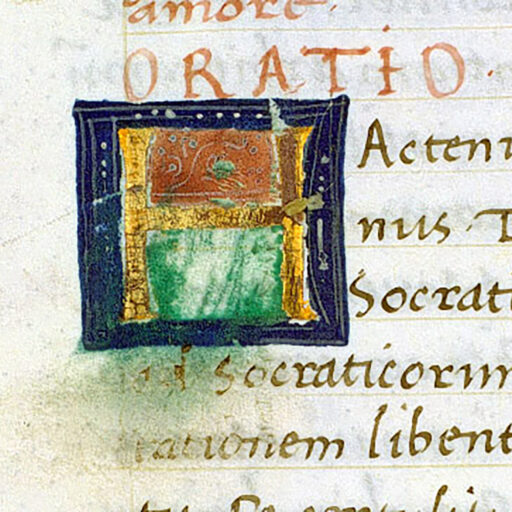 amore.
ORATIO.
HActen
nus. T
Socrat
ad Socraticorum
rationem libent